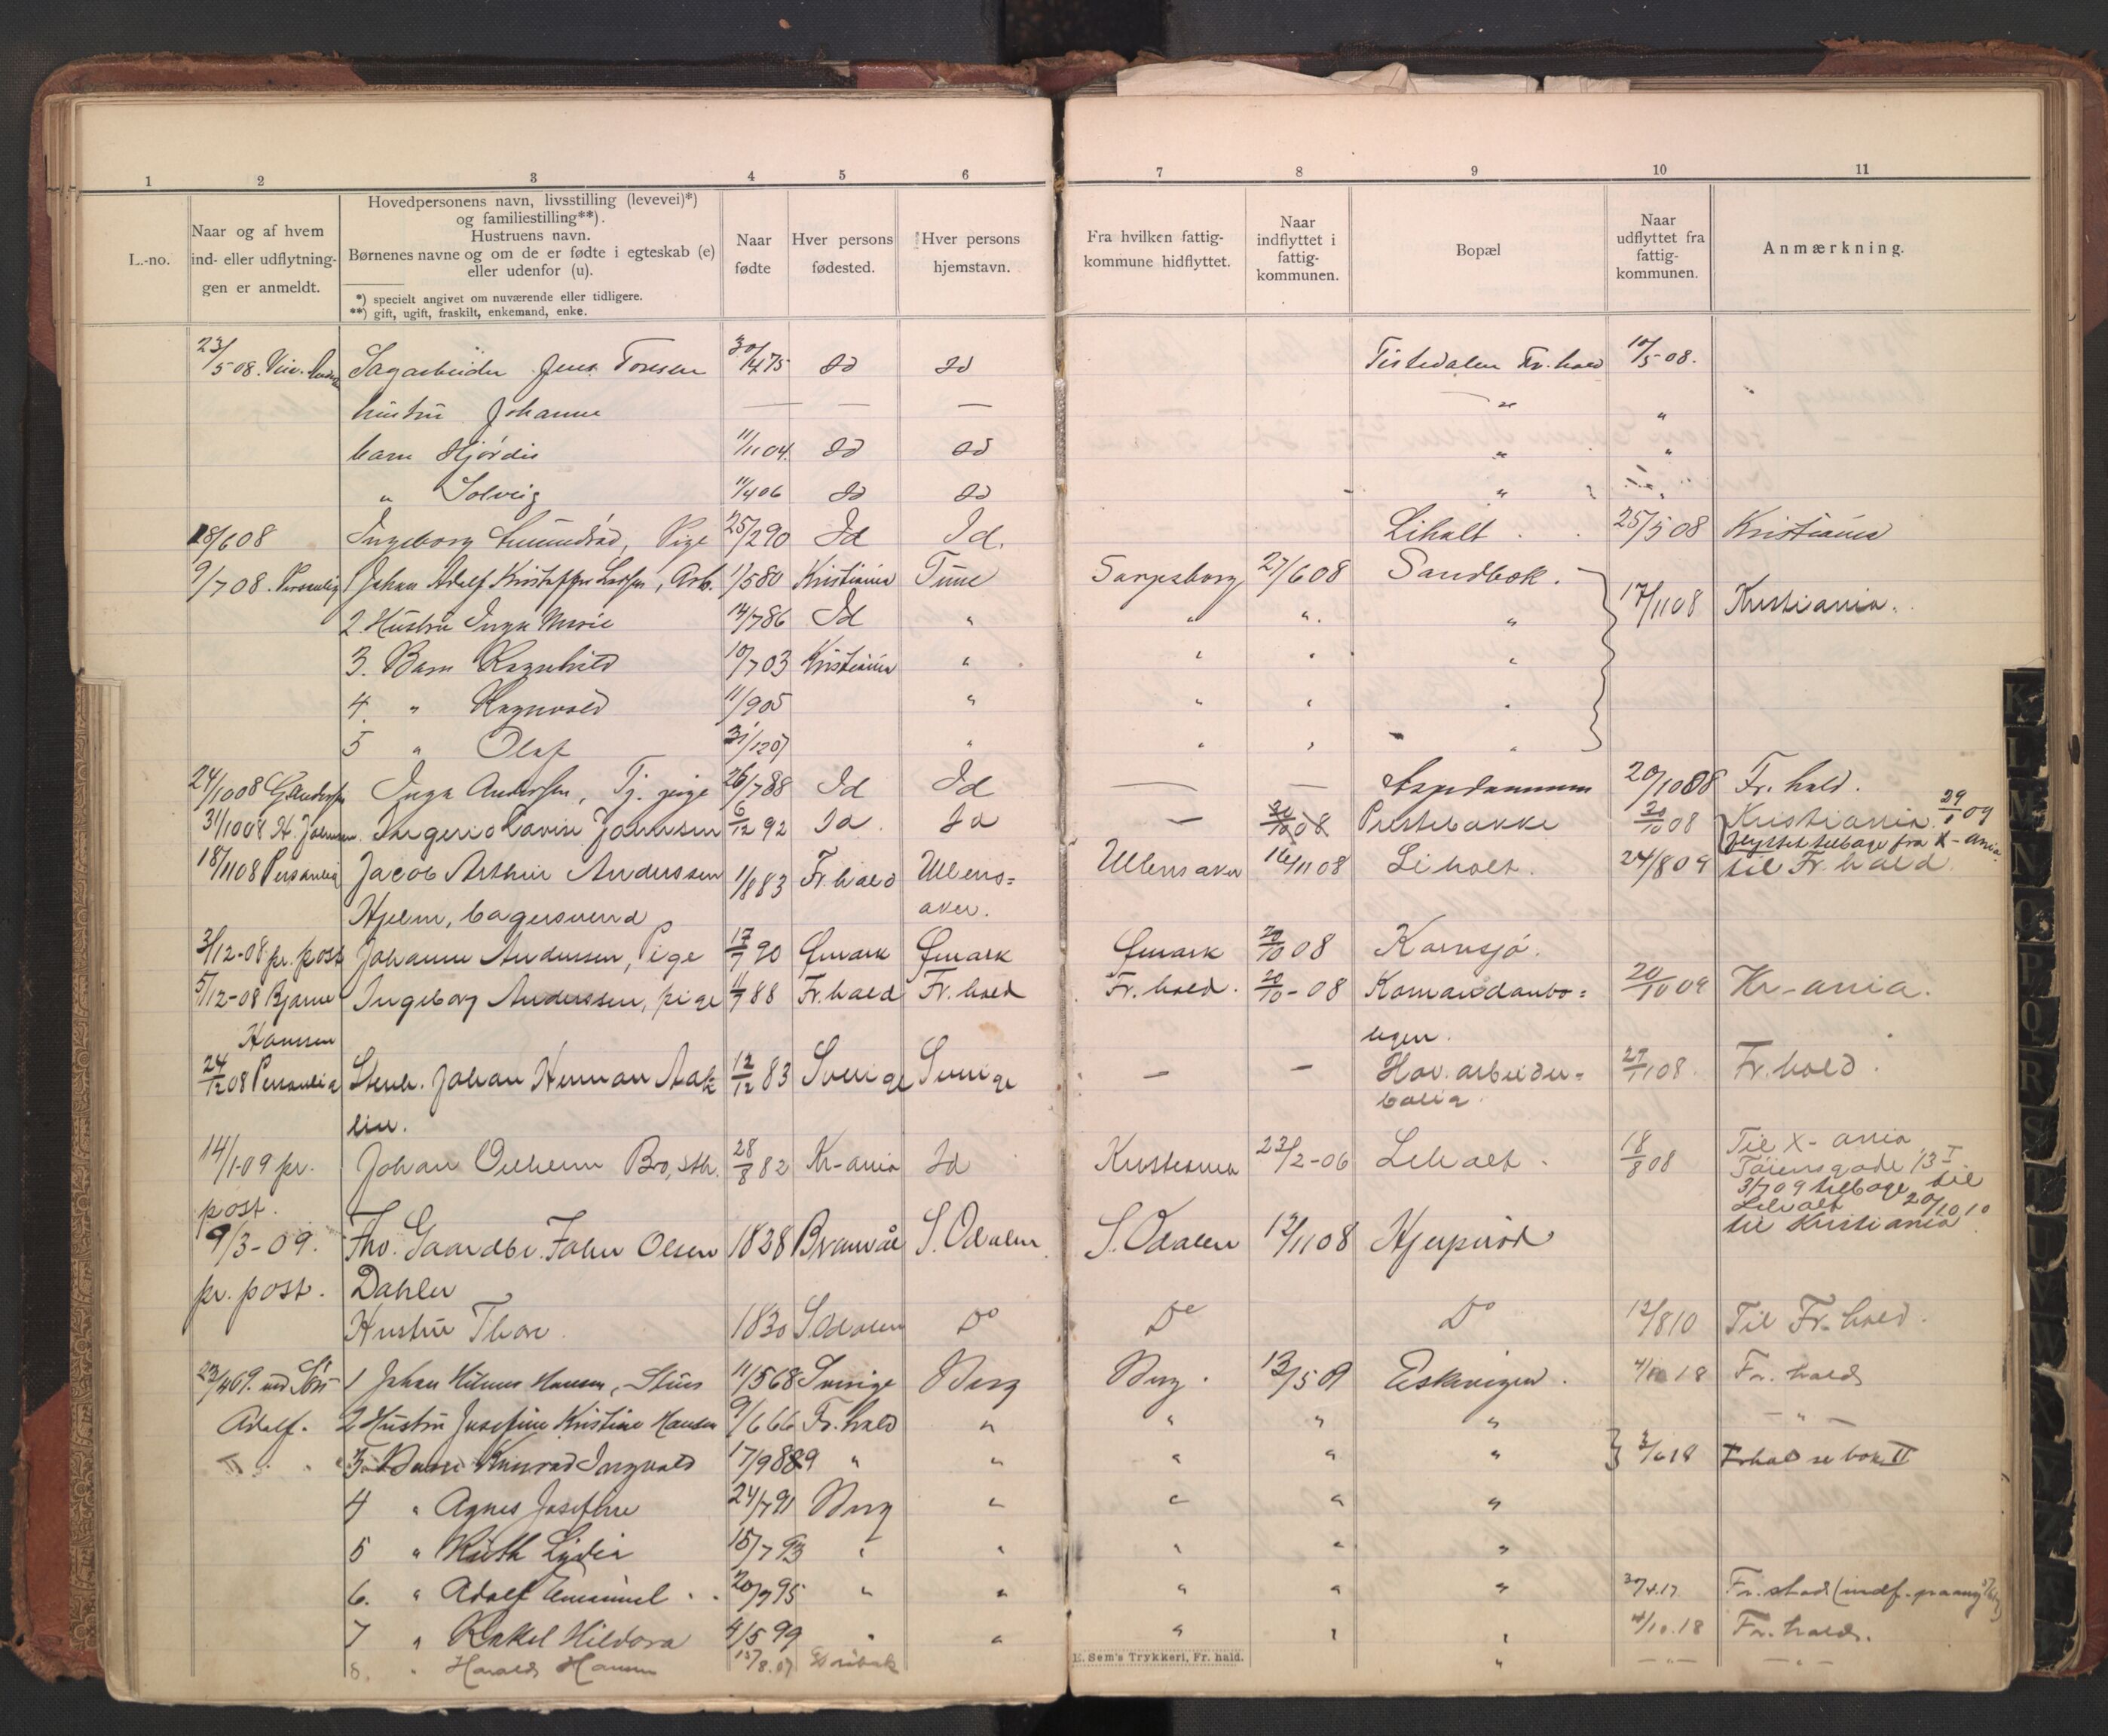 1 2 3 4 5 6 7 8 9 10 11
L.-no.
Naar og af hvem
ind- eller udflytnin-
gen er anmeldt.
Hovedpersonens navn, livsstilling (levevei)*)
og familiestilling**).
Hustruens navn.
Børnenes navne og om de er fødte i egteskab (e)
eller udenfor (u).
*) specielt angivet om nuværende eller tidligere.
**) gift, ugift, fraskilt, enkemand, enke.
Naar
fødte
Hver persons
fødested.
Hver persons
hjemstavn.
Fra hvilken fattig-
kommune hidflyttet.
Naar
indflyttet i
fattig-
kommunen.
Bopæl
Naar
udflyttet fra
fattig-
kommunen.
Anmærkning.
23/5 08. Sagarbeider Jens Toresen 30/4 75 Id Id Tistedalen Fr.hald 10/5 08.
hustru Johanne — — — " "
barn Hjørdis 11/11 04. Id Id " "
" Solveig 11/4 06 Id Id " "
18/6 08 Ingeborg Pige 25/2 90 Id Id. Liholt 25/5 08 Kristiania
9/7 08. Personlig 1 Johan Adolf Kristoffer Larsen, Arb. 1/5 80 Kristiania Tune Sarpsborg 27/6 08 Sandbæk. 17/11 08 Kristiania.
2. Hustru Inga Marie 14/7 86 Id " " " "
3. Barn Ragnhild 10/7 03 Kristiania " " " "
4. " Ragnvald 11/9 05 " " " "
5 " Olaf 31/12 07 " " " "
24/10 08 G Andersen Inga Andersen, Tj. pige 26/7 88 Id Id — — Aspedammen 20/10 08 Fr. hald.
31/10 08 H. Johansen. Lovise Johansen 6/12 92 Id. Id — 30/10 08 Prestebakke 30/10 08 Kristiania 29/1 09
flyttet tilbage fra X-ania
18/11 08 Personlig Jacob Arthur Anderssen 1/8 83 Fr.hald Ullens= Ullensaker 16/11 08 Liholt. 24/8 09 til Fr.hald
Hjelm, bagersvend aker.
3/12-08 pr. post Johanne Andersen, Pige 17/7 90 Ømark Ømark Ømark 20/10 08 Kornsjø.
5/12-08 Bjarne Ingeborg Anderssen, pige 11/7 88 Fr.hald Fr.hald Fr.hald. 20/10-08 Komandantbo= 20/10 09 Kr-ania.
Hanssen ligen.
24/12 08 Personlig Stenh. Johan Herman Aake 12/12 83 Sverige Sverige — — Hov. arbeider= 27/11 08. Fr.hald.
lin. bolig.
14/1-09 pr. Johan Vilhelm Bro, sth. 28/8 82 Kr-ania Id Kristiania 22/2-06 Liholt. 18/8 08 Til X-ania
post. Tøiensgade 13 I
3/7 09 tilbage til
Liholt 20/10 10
til Kristiania
9/3-09. Fhv. Gaardbr. John Olsen 1838 Brandval S. Odalen S. Odalen 12/11 08 Hjerpirød
pr. post. Dahlen
Hustru Thore. 1830 S Odalen Do Do Do 12/8 10 Til Fr.hald.
23/4 09. ved Søn 1 Johan Hilmer Hansen, Stens 11/5 68 Sverige Berg Berg. 13/5 09 Eskevigen. 4/10 18 Fr. hald
Adolf. 2 Hustru Josefine Kristine Hansen 9/6 66 Fr.hald " " " " — " —
II 3 Barn Konrad Ingvald 17/9 889 " " " " " 3/6 18 Frhald se bok II
4 " Agnes Josefine 24/7 91 Berg " " " "
5 " Ruth Lydia 15/7 93 " " " " "
6. " Adolf Emanuel 20/9 95 " " " " " 30/4.17 Fr.stad (indf.
7 " Rakel Hildora 4/5 99 " " " " " 4/10.18 Fr. hald.
8. " Harald Hansen 15/8.07 " — " — — " —
E. Sem's Trykkeri, Fr. hald.
K
L
M
N
O
P
Q
R
S
T
U
V
W